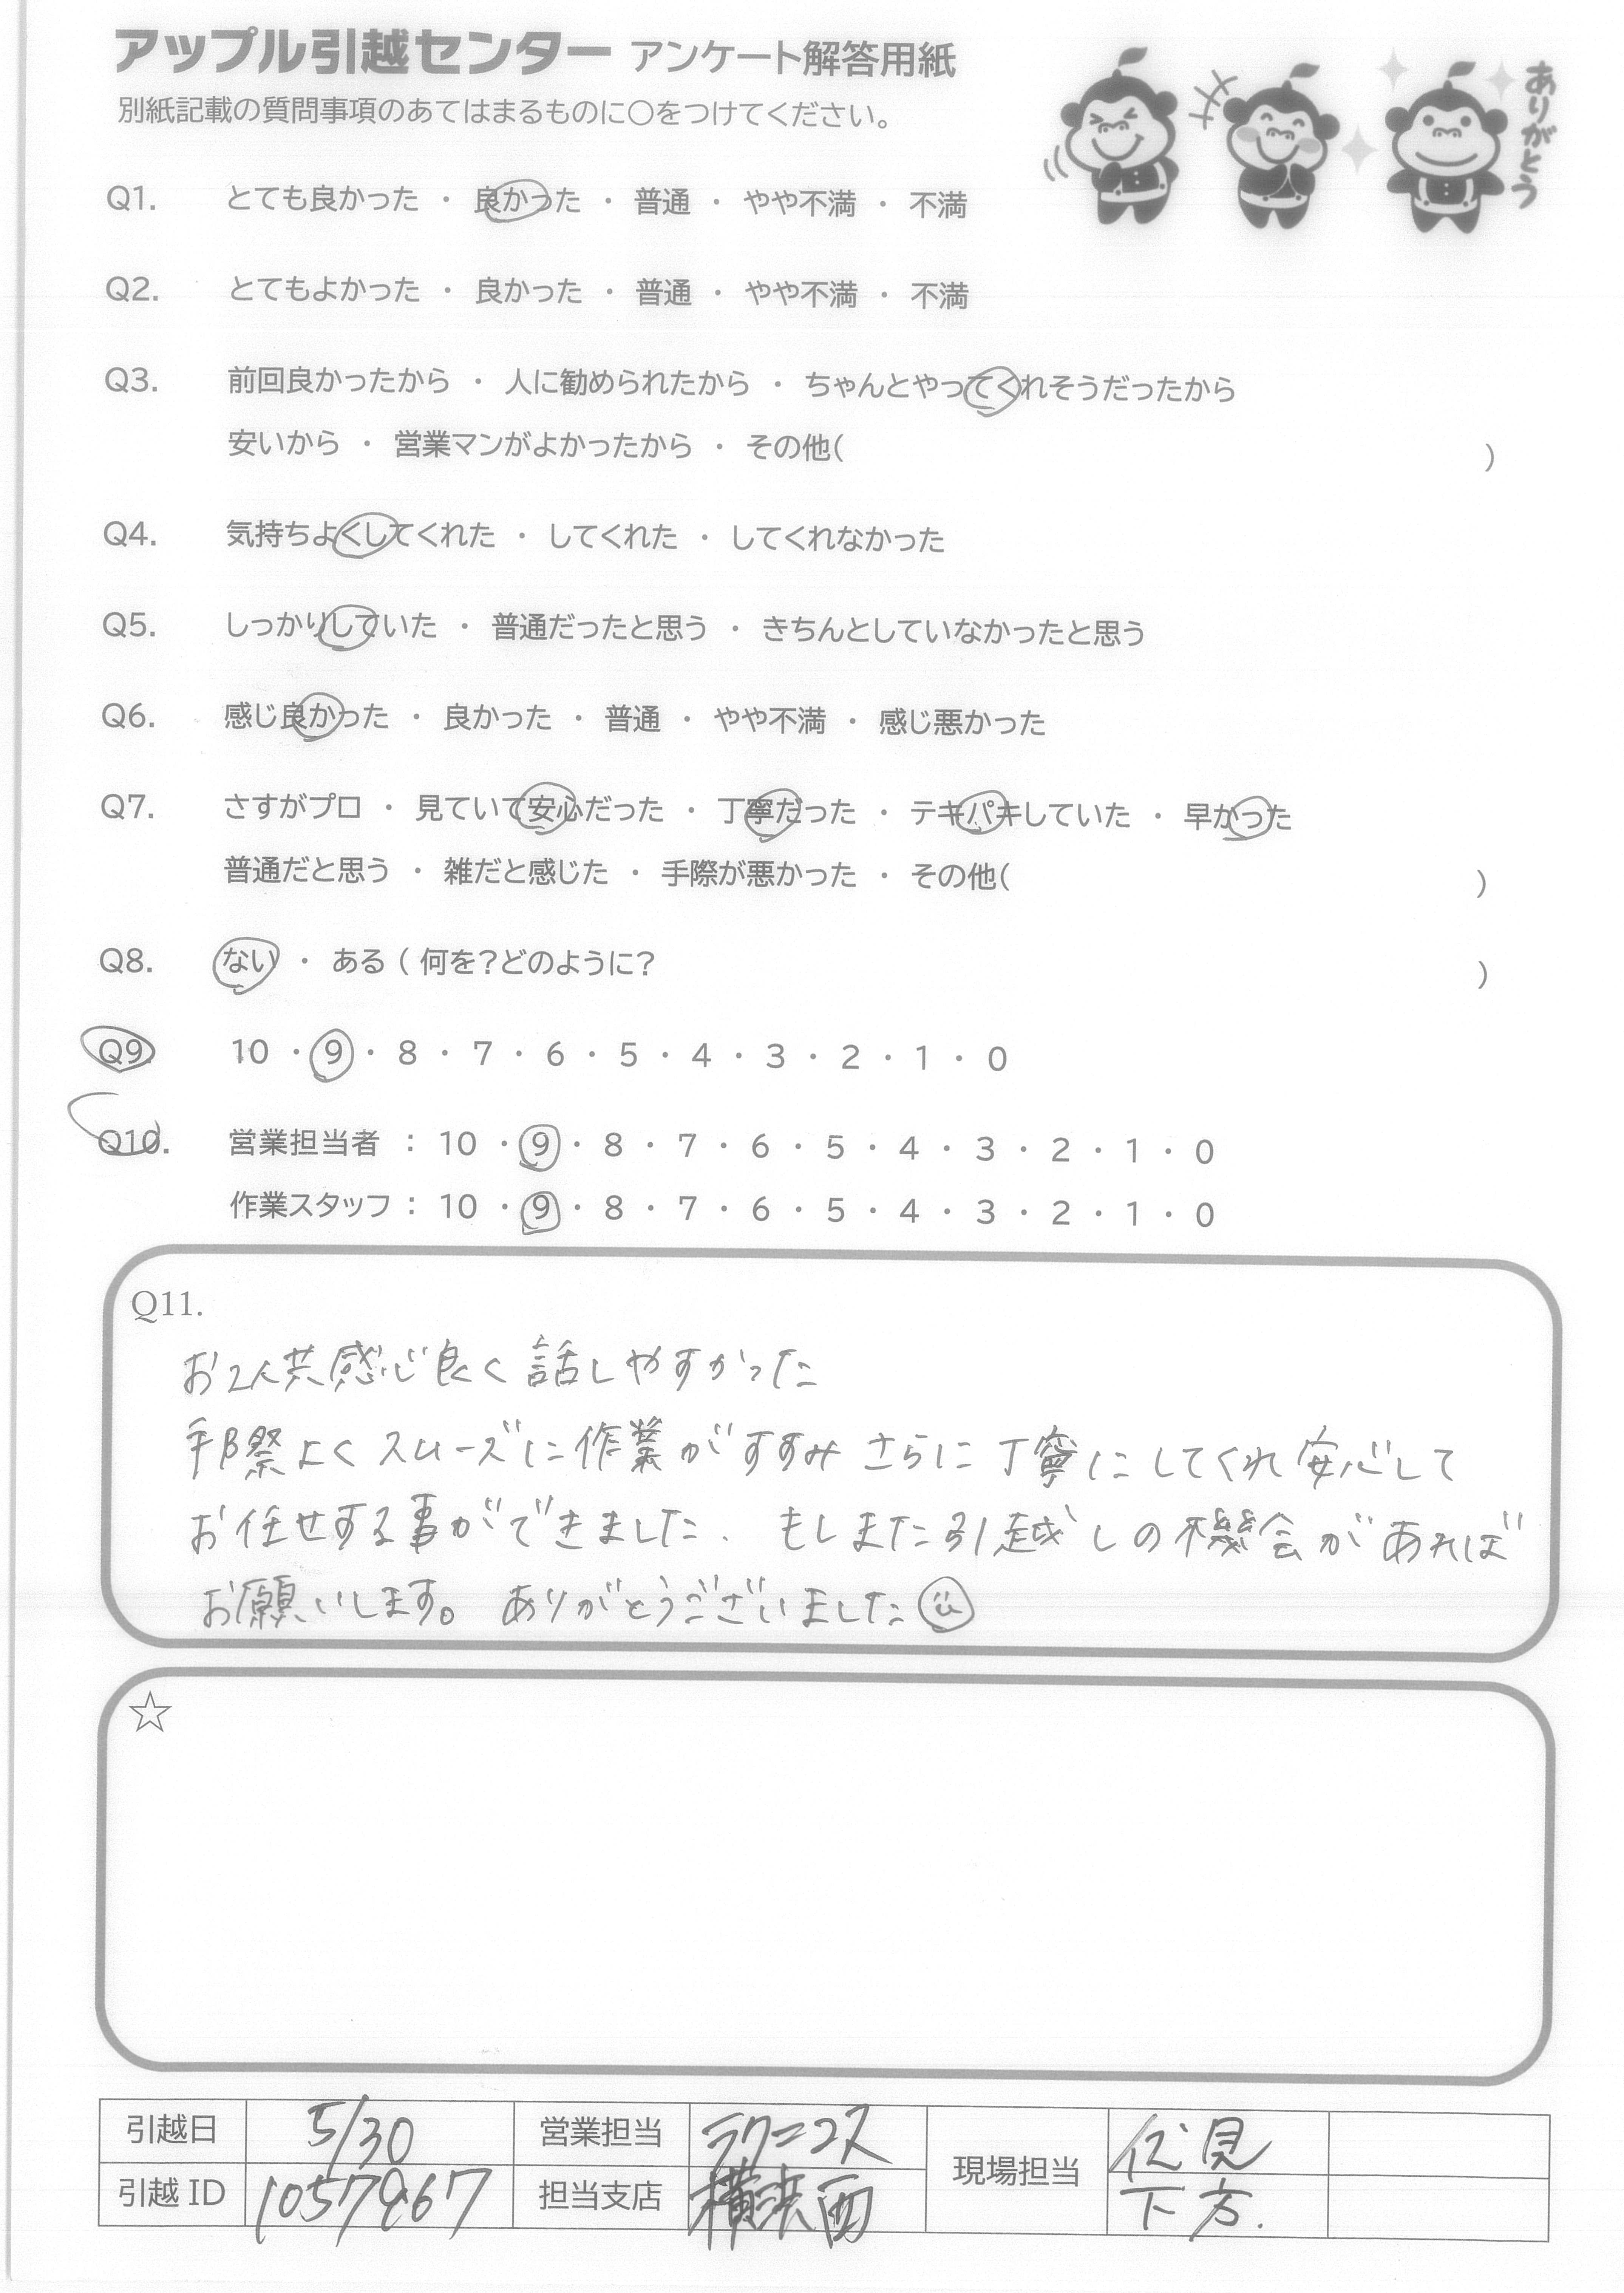 アップル引越センター アンケート解答用紙
別紙記載の質問事項のあてはまるものに○をつけてください。
ありがとう
Q1. とても良かった ・ 良かった ・ 普通 ・ やや不満 ・ 不満
Q2. とてもよかった ・ 良かった ・ 普通 ・ やや不満 ・ 不満
Q3. 前回良かったから ・ 人に勧められたから ・ ちゃんとやってくれそうだったから
安いから ・ 営業マンがよかったから ・ その他( )
Q4. 気持ちよくしてくれた ・ してくれた ・ してくれなかった
Q5. しっかりしていた ・ 普通だったと思う ・ きちんとしていなかったと思う
Q6. 感じ良かった ・ 良かった ・ 普通 ・ やや不満 ・ 感じ悪かった
Q7. さすがプロ ・ 見ていて安心だった ・ 丁寧だった ・ テキパキしていた ・ 早かった
普通だと思う ・ 雑だと感じた ・ 手際が悪かった ・ その他( )
Q8. ない ・ ある ( 何を?どのように? )
Q9. 10 ・ 9 ・ 8 ・ 7 ・ 6 ・ 5 ・ 4 ・ 3 ・ 2 ・ 1 ・ 0
Q10. 営業担当者 : 10 ・ 9 ・ 8 ・ 7 ・ 6 ・ 5 ・ 4 ・ 3 ・ 2 ・ 1 ・ 0
作業スタッフ : 10 ・ 9 ・ 8 ・ 7 ・ 6 ・ 5 ・ 4 ・ 3 ・ 2 ・ 1 ・ 0
Q11.
お2人共感じ良く話しやすかった
手際よくスムーズに作業がすすみ さらに丁寧にしてくれ安心して
お任せする事ができました、 もしまた引越しの機会があれば
お願いします。 ありがとうございました
☆
引越日 5/30 営業担当 ラクニコス 現場担当 伏見
引越 ID 10579967 担当支店 横浜西 下方.